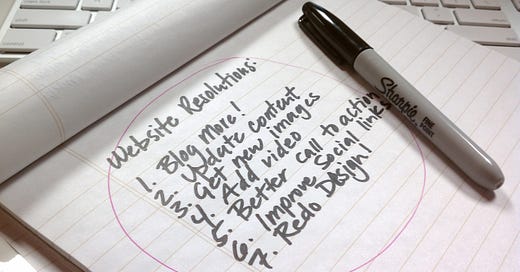 Website Resolutions:
1. Blog More!
2. Update content
3. Get new images
4. Add video
5. Better call to action
6. Improve Social links
7. Redo Design!
Sharpie
FINE POINT